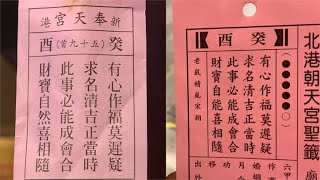 新港奉天宮
癸（五十九首）酉
有心作福莫遲疑
求名清吉正當時
此事必能成會合
財寶自然喜相隨
北港朝天宮聖籤
癸酉
有心作福莫遲疑
求名清吉正當時
此事必能成會合
財寶自能喜相隨
老鼠精亂宋朝
六甲
婚姻
出外